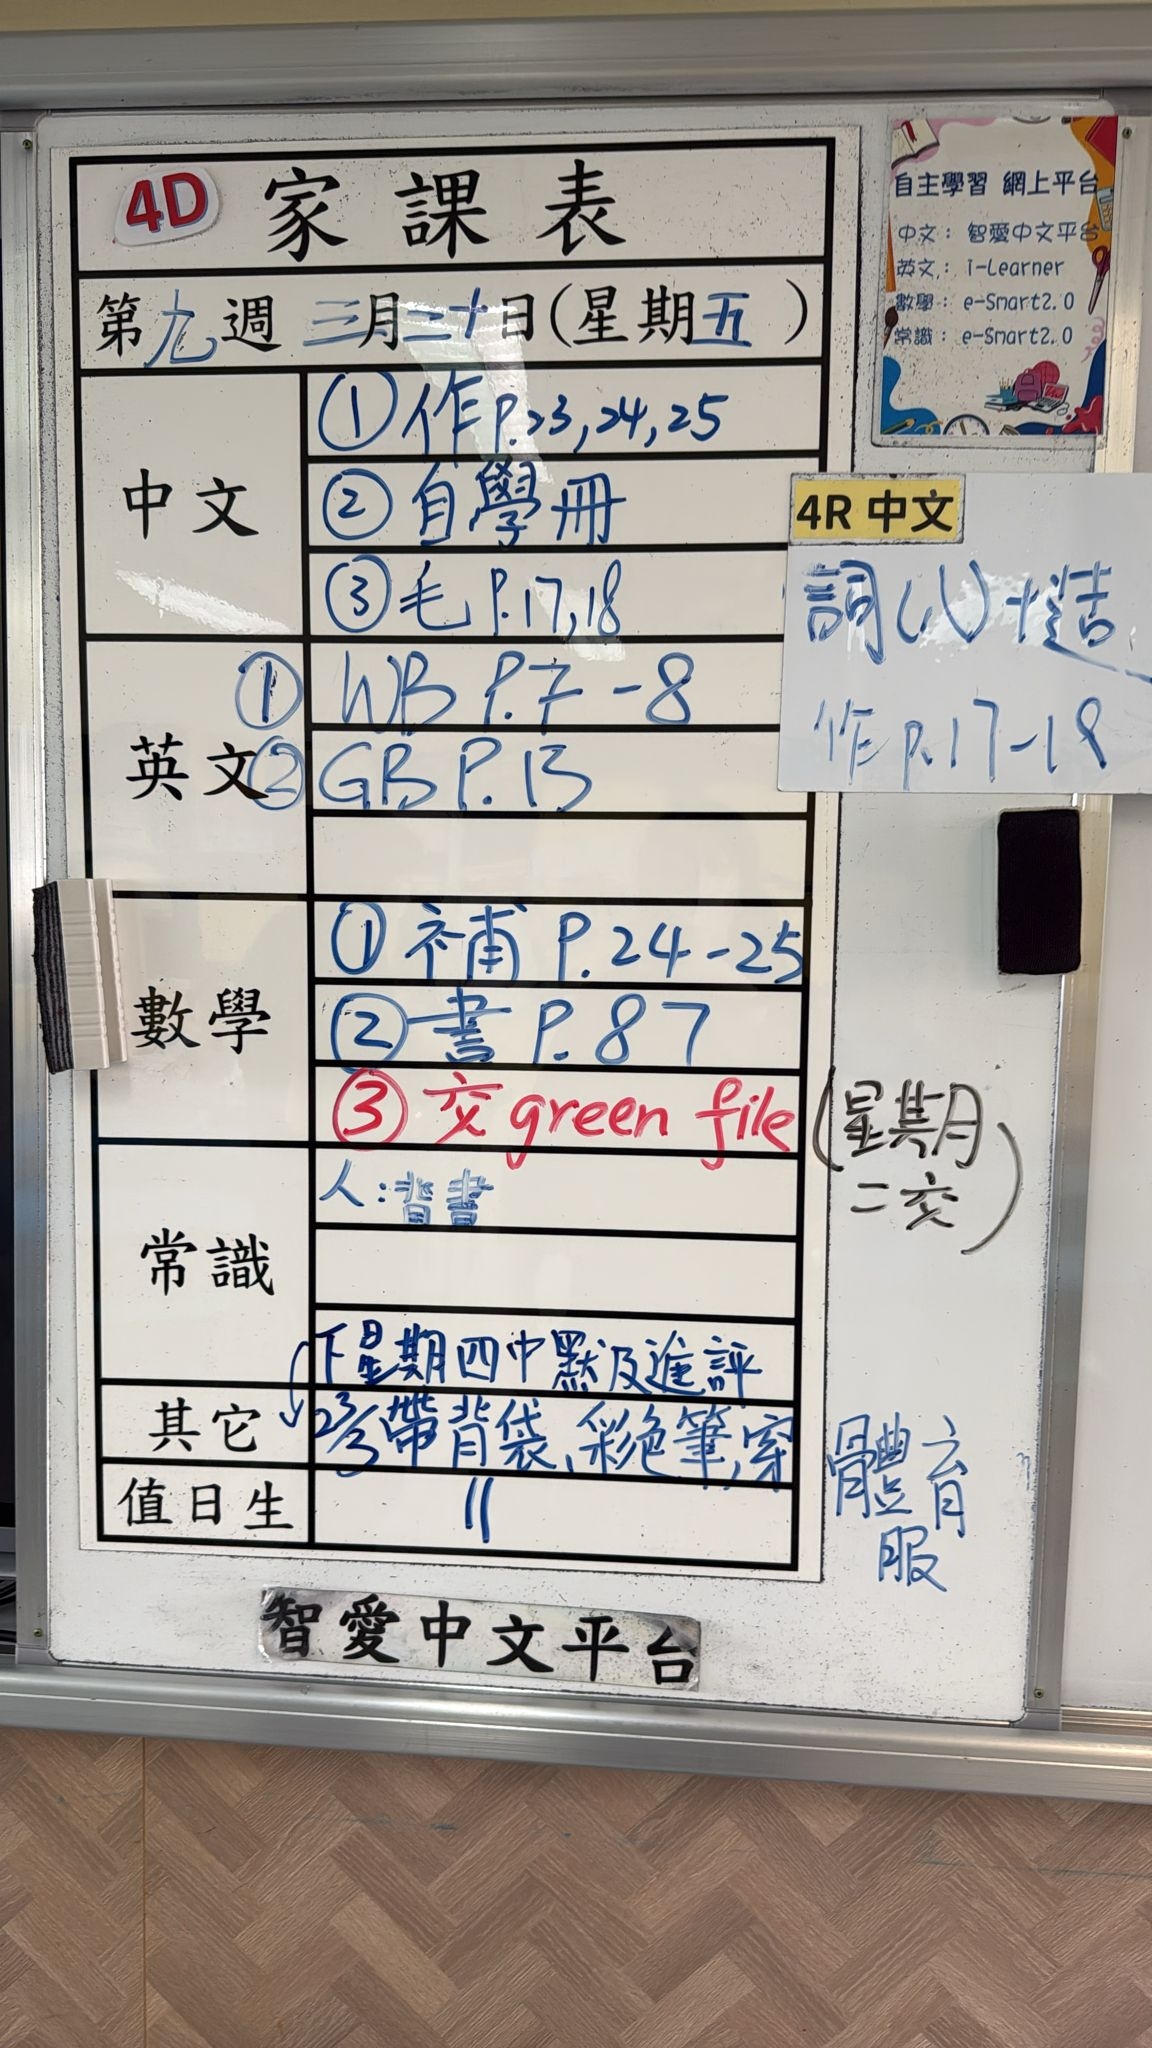 4D 家課表
第九週 三月二十日(星期五)
中文
①作 P.23,24,25
②自學冊
③毛 P.17,18
英文
① WB P.7-8
② GB P.13
數學
①補 P.24-25
②書 P.87
③交 green file (星期二交)
常識
人:背書
下星期四中默及進評
其它
23/3帶背袋、彩色筆,穿體育服
值日生
11
智愛中文平台
自主學習 網上平台
中文: 智愛中文平台
英文: i-Learner
數學: e-Smart2.0
常識: e-Smart2.0
4R 中文
詞(八)+造
作 P.17-18